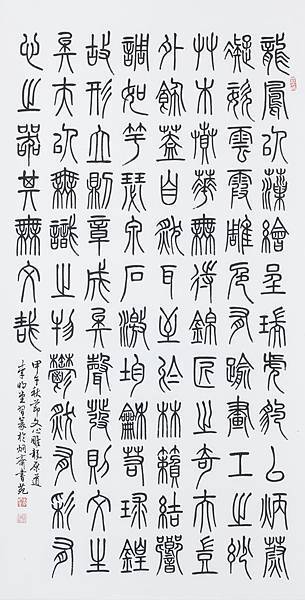 龍鳳以藻繪呈瑞虎豹以炳蔚
凝姿雲霞雕色有踰畫工之妙
艸木賁華無待錦匠之奇夫豈
外飾蓋自然耳至於林籟結響
調如竽瑟泉石激均龢若球鍠
故形立則章成矣聲發則文生
矣夫以無識之物鬱然有彩有
心之器其無文哉
甲午秋節文心雕龍原道
篆於炯齋書苑